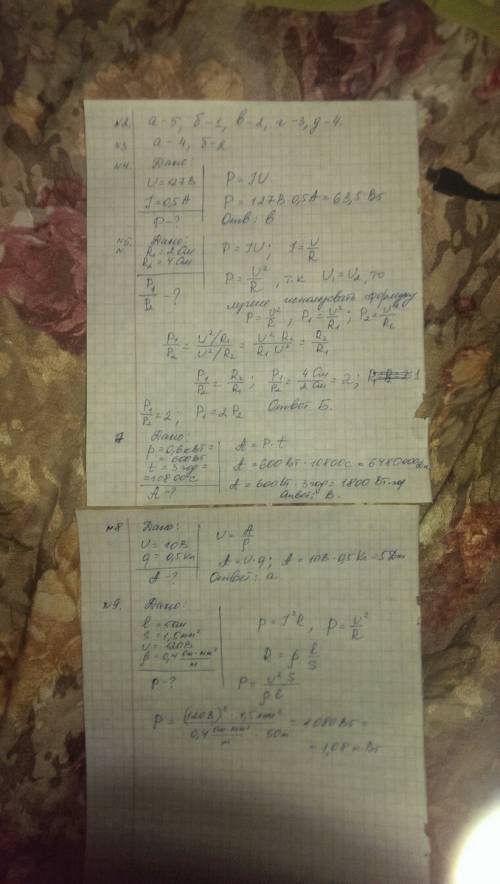 №2. а-5, б-1, в-2, г-3, д-4.
№3 а-4, б-2
№4. Дано:
U=127В
I=0,5А
P-?
P=IU
P=127В·0,5А=63,5Вт
Отв: в
№5. Дано:
R₁=2Ом
R₂=4Ом
P₁/P₂-?
P=IU; I=U/R
P=U²/R, т.к U₁=U₂, то
лучше использовать формулу
P=U²/R, P₁=U²/R₁; P₂=U²/R₂
P₁/P₂=(U²/R₁)/(U²/R₂)=U²R₂/R₁U²=R₂/R₁
P₁/P₂=R₂/R₁; P₁/P₂=4Ом/2Ом=2;
P₁/P₂=2, P₁=2P₂ Ответ Б.
7 Дано:
p=0,6кВт=
=600Вт
t=3год=
=10800с
A-?
A=P·t
A=600Вт·10800с=6480000Дж
A=600Вт·3год=1800Вт·год
Ответ: В.
№8 Дано:
U=10В
q=0,5Кл
A-?
U=A/q
A=U·q; A=10В·0,5Кл=5Дж
Ответ: а.
№9. Дано:
S=1,5мм²
U=120В
ρ=0,4 Ом·мм²/м
P-?
P=I²R, P=U²/R
R=ρ l/S
P=U²S/ρl
P=(120В)²·1,5мм²/0,4 Ом·мм²/м 50м=1080Вт=
=1,08кВт